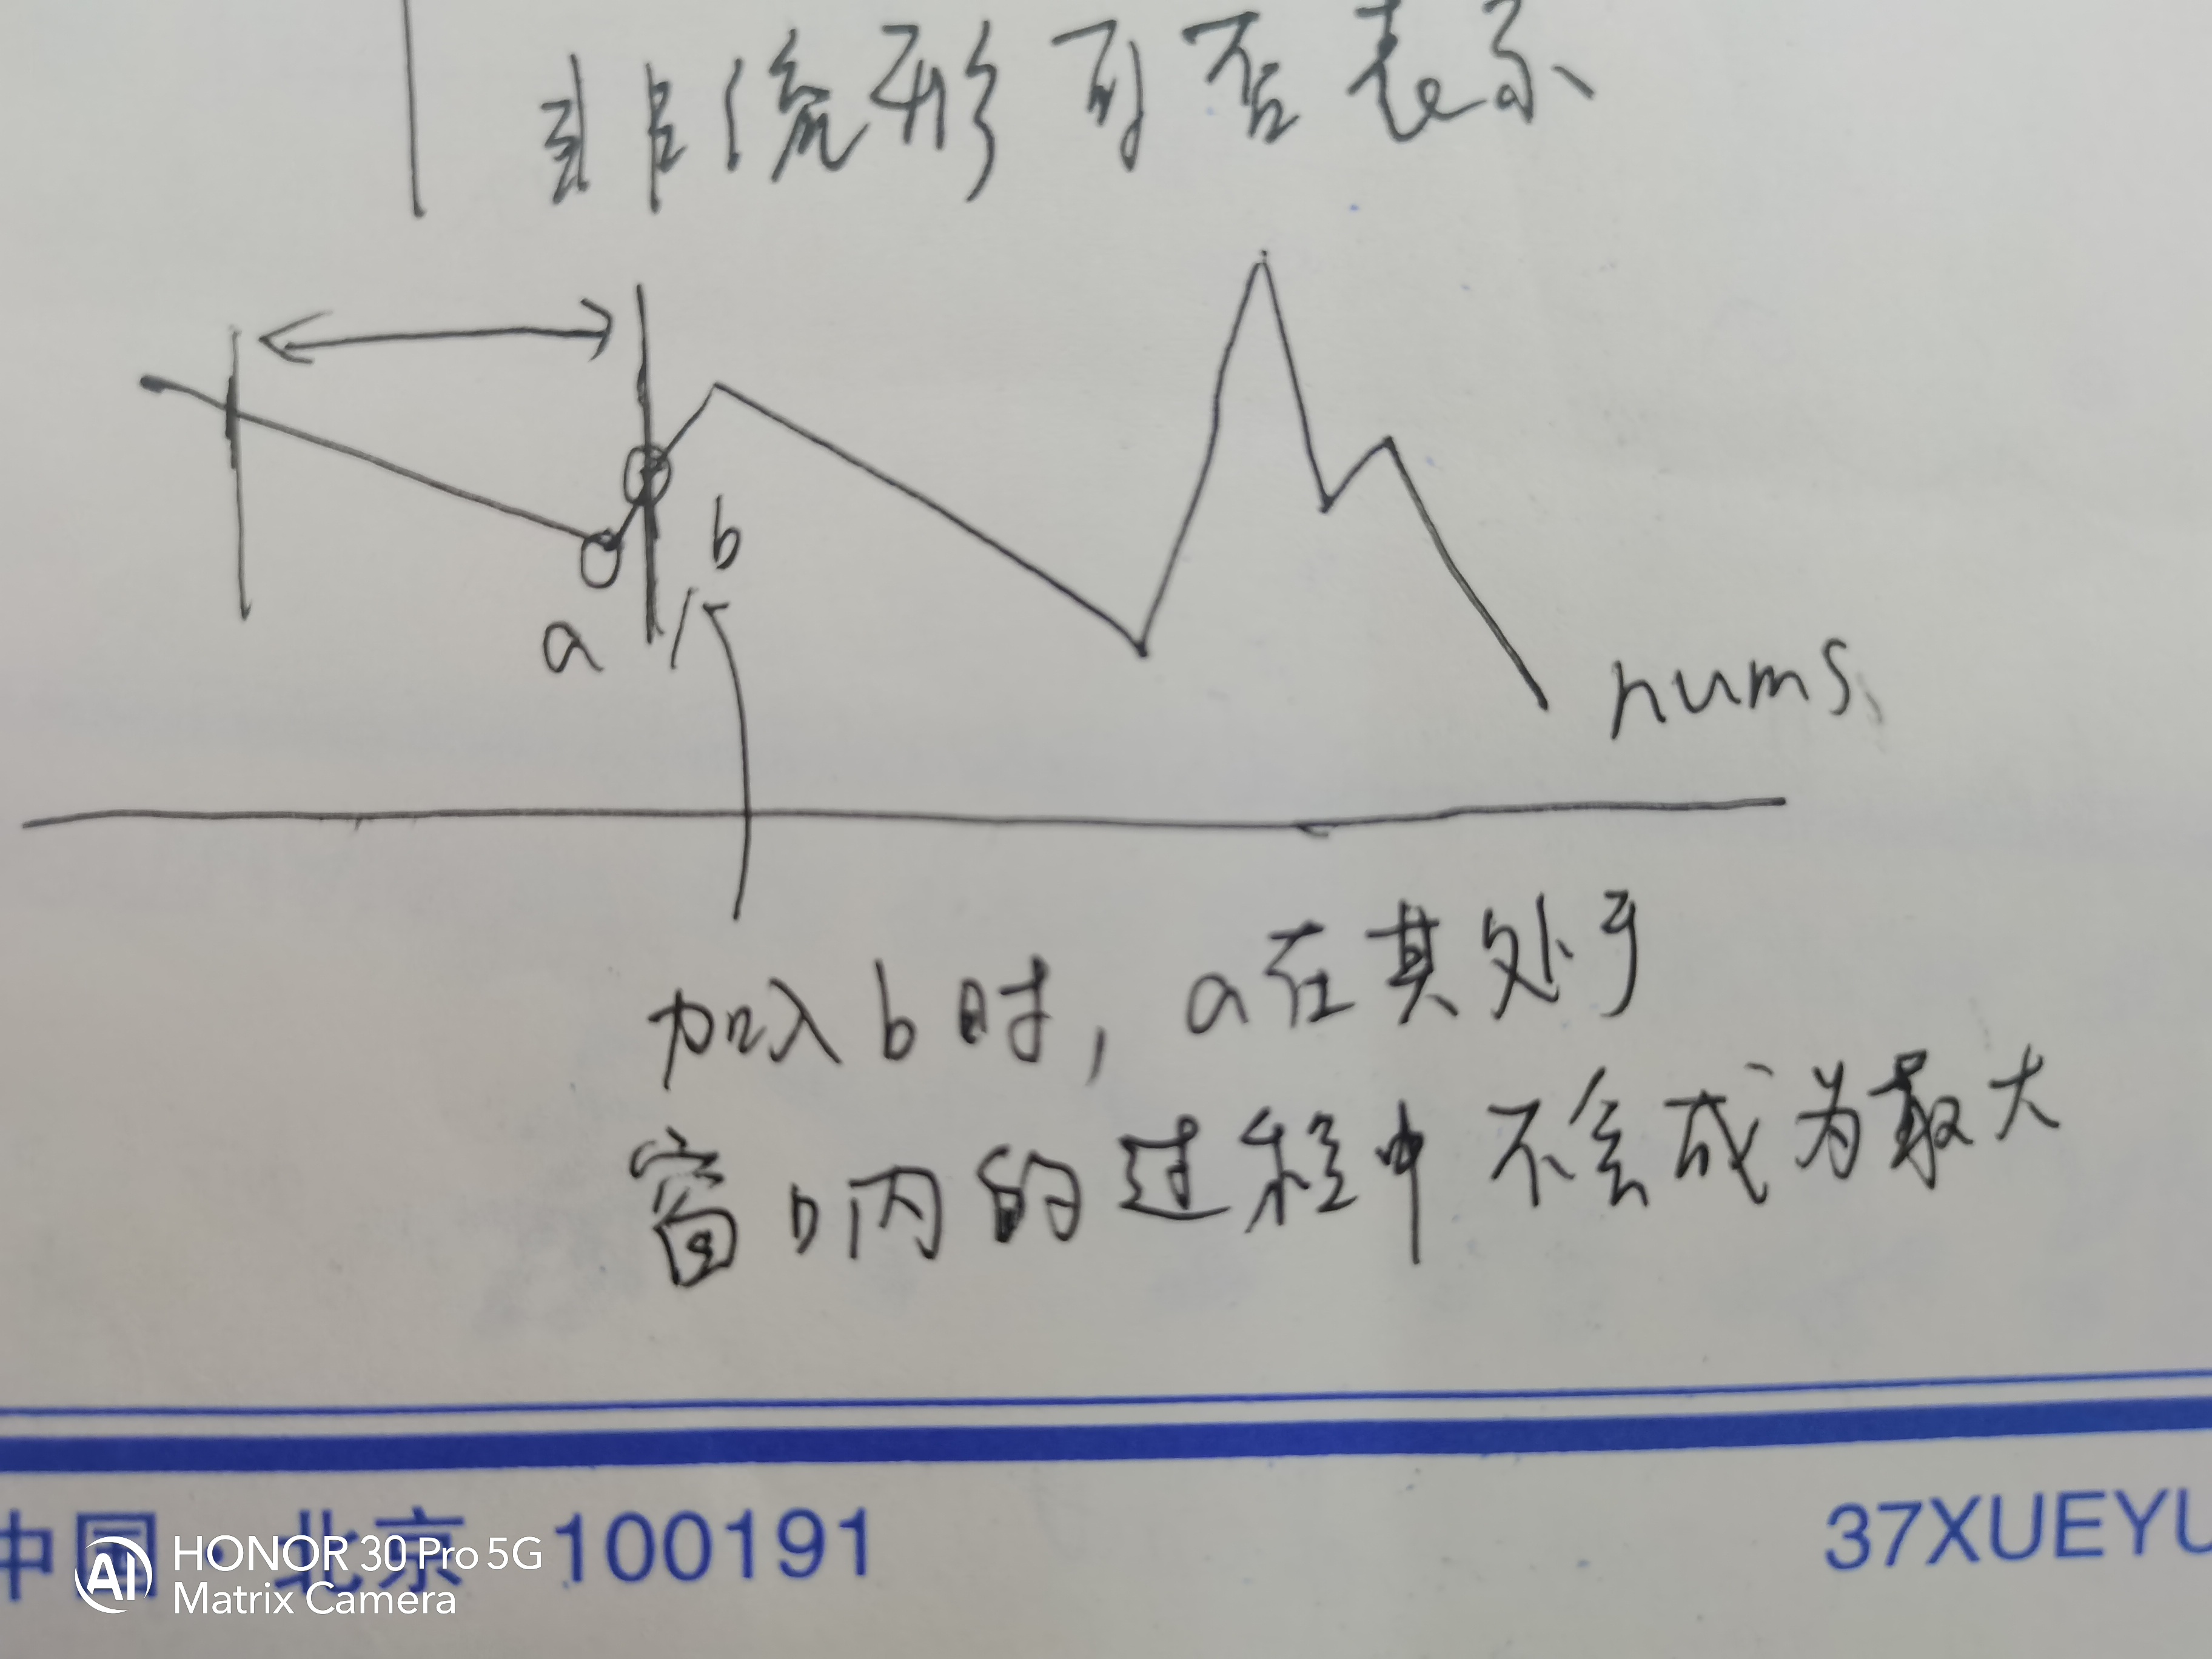 非统形可否表示
a
b
nums
加入b时，a在其处于
窗口内的过程中不会成为最大
中国 北京 100191
37XUEYU
AI HONOR 30 Pro 5G
Matrix Camera